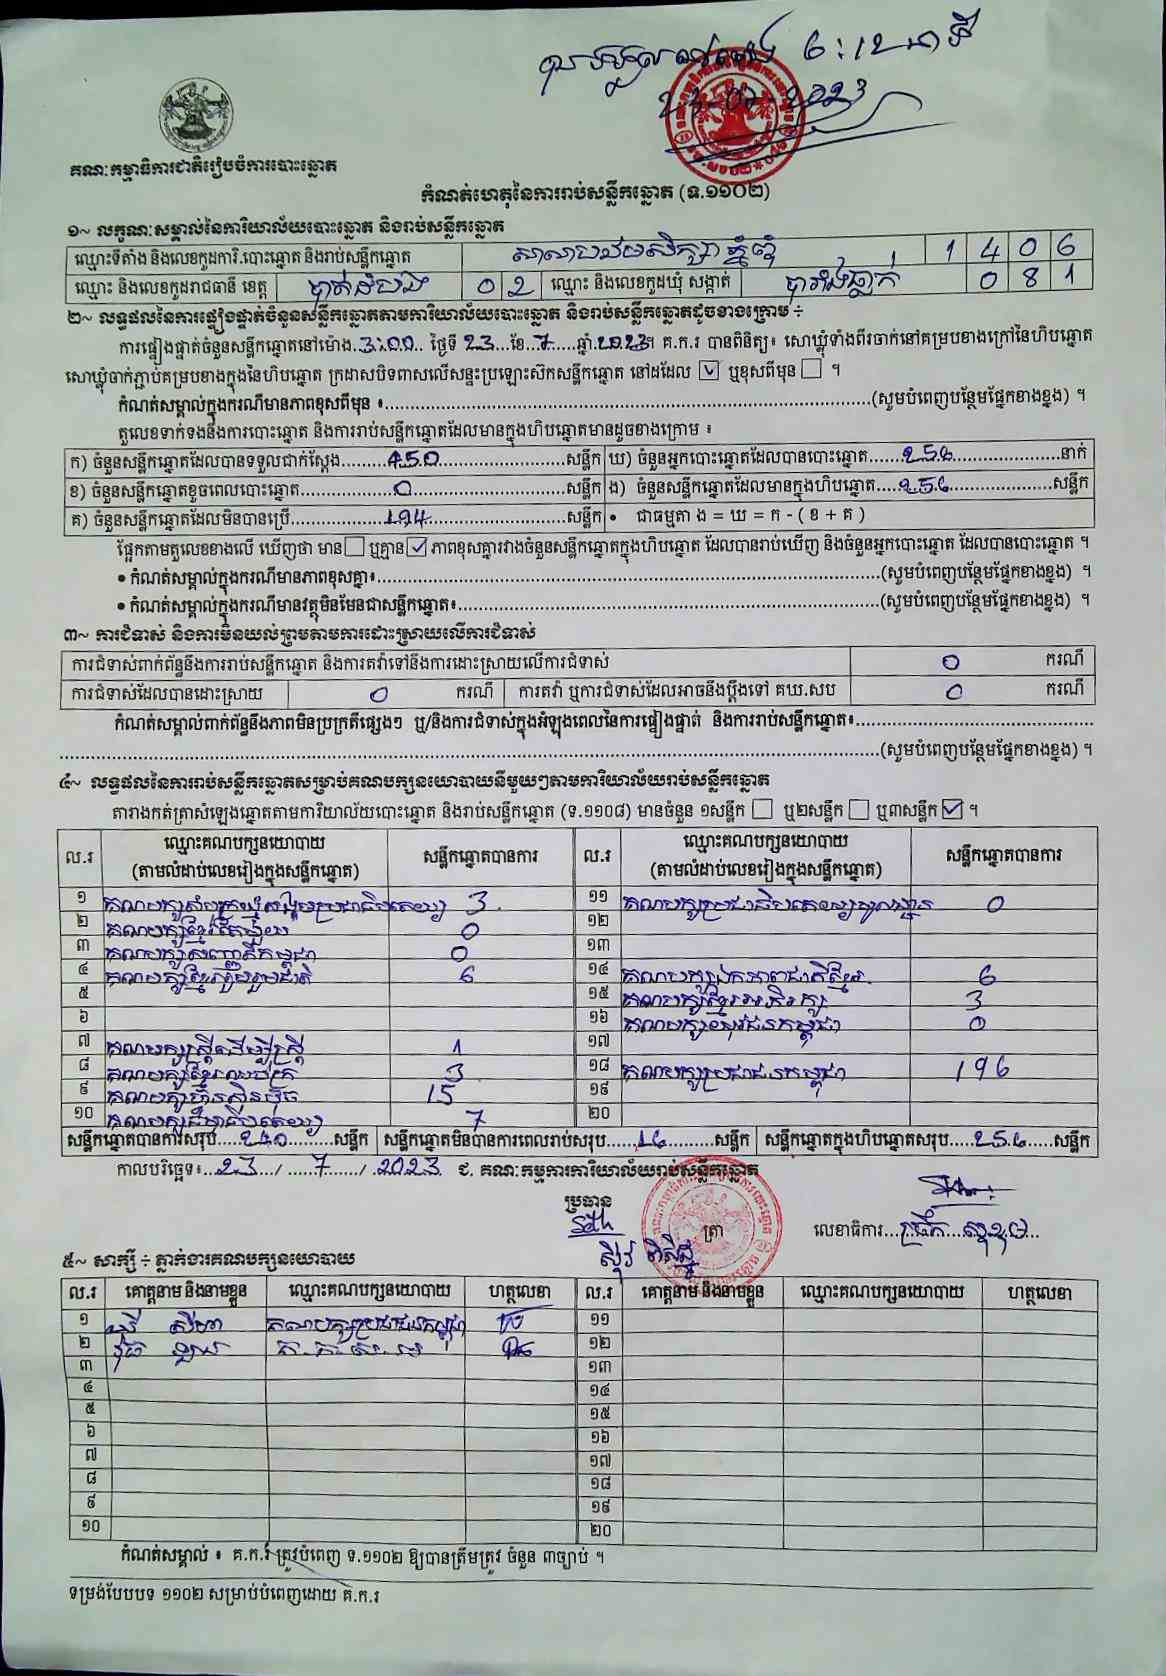 ៦:១២នាទី
23-07-2023
គណៈកម្មាធិការជាតិរៀបចំការបោះឆ្នោត
កំណត់ហេតុនៃការរាប់សន្លឹកឆ្នោត (ទ.១១០២)
១~ លក្ខណៈសម្គាល់នៃការិយាល័យបោះឆ្នោត និងរាប់សន្លឹកឆ្នោត
ឈ្មោះទីតាំង និងលេខកូដការិ.បោះឆ្នោត និងរាប់សន្លឹកឆ្នោត សាលាបឋមសិក្សា 1 4 0 6
ឈ្មោះ និងលេខកូដរាជធានី ខេត្ត បាត់ដំបង 0 2 ឈ្មោះ និងលេខកូដឃុំ សង្កាត់ បារាំងធ្លាក់ 0 8 1
២~ លទ្ធផលនៃការផ្ទៀងផ្ទាត់ចំនួនសន្លឹកឆ្នោតតាមការិយាល័យបោះឆ្នោត និងរាប់សន្លឹកឆ្នោតដូចខាងក្រោម ÷
ការផ្ទៀងផ្ទាត់ចំនួនសន្លឹកឆ្នោតនៅម៉ោង.3:00... ថ្ងៃទី 23..ខែ.7.....ឆ្នាំ.2023។ គ.ក.រ បានពិនិត្យ៖ សោឃ្លុំទាំងពីរចាក់នៅគម្របខាងក្រៅនៃហិបឆ្នោត
សោឃ្លុំចាក់ភ្ជាប់គម្របខាងក្នុងនៃហិបឆ្នោត ក្រដាសបិទពាសលើសន្ទះប្រឡោះស៊កសន្លឹកឆ្នោត នៅដដែល ☑ ឬខុសពីមុន ☐ ។
កំណត់សម្គាល់ក្នុងករណីមានភាពខុសពីមុន ៖...(សូមបំពេញបន្ថែមផ្នែកខាងខ្នង) ។
តួលេខទាក់ទងនឹងការបោះឆ្នោត និងការរាប់សន្លឹកឆ្នោតដែលមានក្នុងហិបឆ្នោតមានដូចខាងក្រោម ៖
ក) ចំនួនសន្លឹកឆ្នោតដែលបានទទួលជាក់ស្តែង...450...សន្លឹក ឃ) ចំនួនអ្នកបោះឆ្នោតដែលបានបោះឆ្នោត...256...នាក់
ខ) ចំនួនសន្លឹកឆ្នោតខូចពេលបោះឆ្នោត...0...សន្លឹក ង) ចំនួនសន្លឹកឆ្នោតដែលមានក្នុងហិបឆ្នោត...256...សន្លឹក
គ) ចំនួនសន្លឹកឆ្នោតដែលមិនបានប្រើ...194...សន្លឹក • ជាធម្មតា ង = ឃ = ក - ( ខ + គ )
ផ្អែកតាមតួលេខខាងលើ ឃើញថា មាន ☐ ឬគ្មាន ☑ ភាពខុសគ្នារវាងចំនួនសន្លឹកឆ្នោតក្នុងហិបឆ្នោត ដែលបានរាប់ឃើញ និងចំនួនអ្នកបោះឆ្នោត ដែលបានបោះឆ្នោត ។
• កំណត់សម្គាល់ក្នុងករណីមានភាពខុសគ្នា៖...(សូមបំពេញបន្ថែមផ្នែកខាងខ្នង) ។
• កំណត់សម្គាល់ក្នុងករណីមានវត្ថុមិនមែនជាសន្លឹកឆ្នោត៖...(សូមបំពេញបន្ថែមផ្នែកខាងខ្នង) ។
៣~ ការជំទាស់ និងការមិនយល់ព្រមតាមការដោះស្រាយលើការជំទាស់
ការជំទាស់ពាក់ព័ន្ធនឹងការរាប់សន្លឹកឆ្នោត និងការតវ៉ាទៅនឹងការដោះស្រាយលើការជំទាស់ 0 ករណី
ការជំទាស់ដែលបានដោះស្រាយ 0 ករណី ការតវ៉ា ឬការជំទាស់ដែលអាចនឹងប្តឹងទៅ គឃ.សប 0 ករណី
កំណត់សម្គាល់ពាក់ព័ន្ធនឹងភាពមិនប្រក្រតីផ្សេងៗ ឬ/និងការជំទាស់ក្នុងអំឡុងពេលនៃការផ្ទៀងផ្ទាត់ និងការរាប់សន្លឹកឆ្នោត៖...
...(សូមបំពេញបន្ថែមផ្នែកខាងខ្នង) ។
៤~ លទ្ធផលនៃការរាប់សន្លឹកឆ្នោតសម្រាប់គណបក្សនយោបាយនីមួយៗតាមការិយាល័យរាប់សន្លឹកឆ្នោត
តារាងកត់ត្រាសំឡេងឆ្នោតតាមការិយាល័យបោះឆ្នោត និងរាប់សន្លឹកឆ្នោត (ទ.១១០៨) មានចំនួន ១សន្លឹក ☐ ឬ២សន្លឹក ☐ ឬ៣សន្លឹក ☑ ។
ល.រ ឈ្មោះគណបក្សនយោបាយ សន្លឹកឆ្នោតបានការ ល.រ ឈ្មោះគណបក្សនយោបាយ សន្លឹកឆ្នោតបានការ
(តាមលំដាប់លេខរៀងក្នុងសន្លឹកឆ្នោត) (តាមលំដាប់លេខរៀងក្នុងសន្លឹកឆ្នោត)
១ គណបក្សសំបុកឃ្មុំសង្គមប្រជាធិបតេយ្យ 3 ១១ គណបក្សប្រជាធិបតេយ្យមូលដ្ឋាន 0
២ គណបក្សខ្មែរតែមួយ 0 ១២
៣ គណបក្សសញ្ជាតិកម្ពុជា 0 ១៣
៤ គណបក្សខ្មែររួបរួមជាតិ 6 ១៤ គណបក្សឯកភាពជាតិខ្មែរ 6
៥ ១៥ គណបក្សខ្មែរអភិរក្ស 3
៦ ១៦ គណបក្សយុវជនកម្ពុជា 0
៧ គណបក្សស្ត្រីដើម្បីស្ត្រី 1 ១៧
៨ គណបក្សខ្មែរឈប់ក្រ 3 ១៨ គណបក្សប្រជាជនកម្ពុជា 196
៩ គណបក្សហ៊្វុនស៊ិនប៉ិច 15 ១៩
១០ គណបក្សធម្មាធិបតេយ្យ 7 ២០
សន្លឹកឆ្នោតបានការសរុប...240...សន្លឹក សន្លឹកឆ្នោតមិនបានការពេលរាប់សរុប...16...សន្លឹក សន្លឹកឆ្នោតក្នុងហិបឆ្នោតសរុប...256...សន្លឹក
កាលបរិច្ឆេទ៖...23.../...7.../.2023 ជ. គណៈកម្មការការិយាល័យរាប់សន្លឹកឆ្នោត
ប្រធាន
ត្រា លេខាធិការ...
៥~ សាក្សី ÷ ភ្នាក់ងារគណបក្សនយោបាយ
ល.រ គោត្តនាម និងនាមខ្លួន ឈ្មោះគណបក្សនយោបាយ ហត្ថលេខា ល.រ គោត្តនាម និងនាមខ្លួន ឈ្មោះគណបក្សនយោបាយ ហត្ថលេខា
១ គណបក្សប្រជាជនកម្ពុជា ១១
២ ១២
៣ ១៣
៤ ១៤
៥ ១៥
៦ ១៦
៧ ១៧
៨ ១៨
៩ ១៩
១០ ២០
កំណត់សម្គាល់ ៖ គ.ក.រ ត្រូវបំពេញ ទ.១១០២ ឱ្យបានត្រឹមត្រូវ ចំនួន ៣ច្បាប់ ។
ទម្រង់បែបបទ ១១០២ សម្រាប់បំពេញដោយ គ.ក.រ